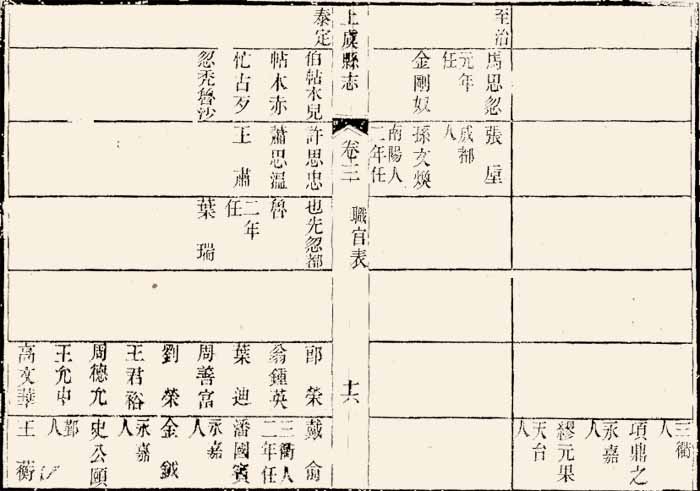 至治
馬思忽
元年
任
金剛奴
張厔
成都
人
孫文煥
南陽人
二年任
三衢
人
項鼎之
永嘉
人
繆元果
天台
人
上虞縣志
卷十三
職官表
十六
泰定
伯帖木兒
帖木亦
忙古歹
忽禿魯沙
許思忠
蕭思溫
王肅
也先忽都
魯
二年
任
葉瑞
郎榮
翁鍾英
葉迪
周善富
劉榮
王君裕
周德允
王允中
高文華
戴侖
三衢人
二年任
潘國賓
永嘉
人
金鉞
永嘉
人
史公頤
鄞
人
王蘅